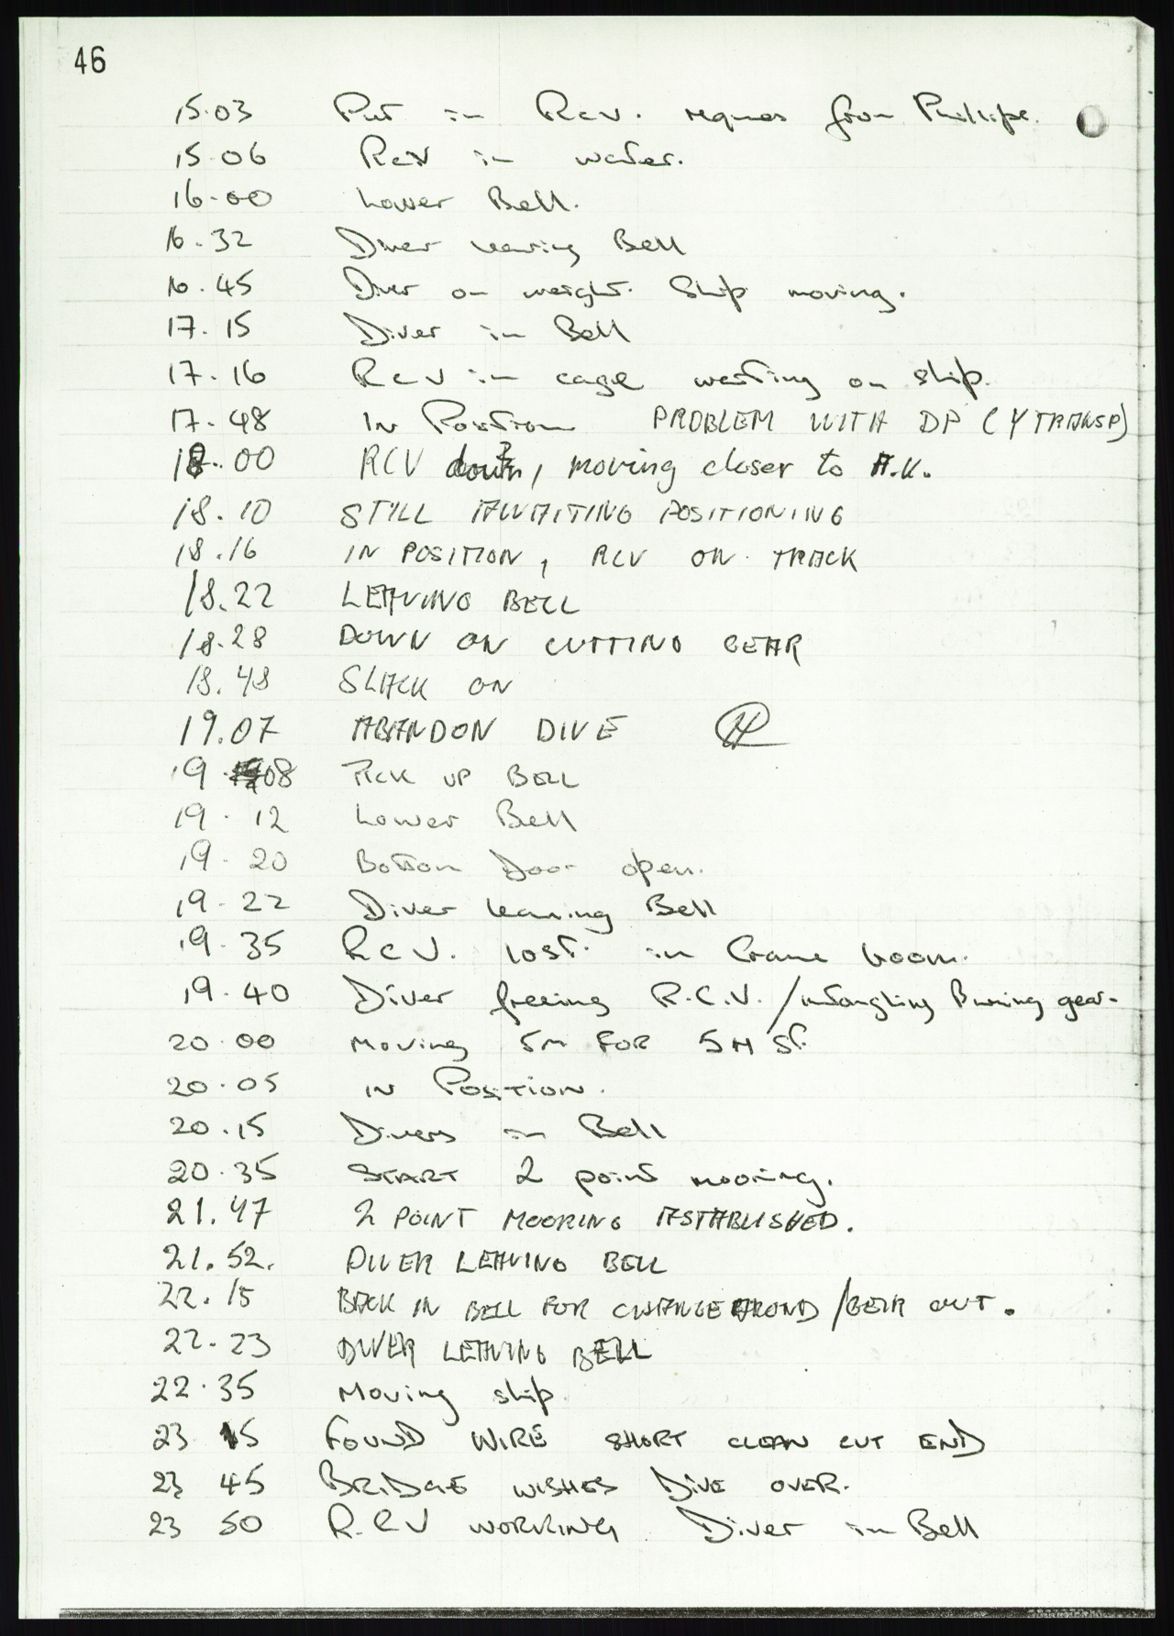 46
15.03 Put in Rcv. request from Phillips.
15 06 Rcv in water.
16.00 Lower Bell.
16.32 Diver leaving Bell
16.45 Diver on weight. Ship moving.
17.15 Diver in Bell
17.16 Rcv in cage waiting on ship.
17.48 In Position PROBLEM WITH DP (Y TRANSP)
18.00 RCV down, moving closer to A.K.
18.10 STILL AWAITING POSITIONING
18.16 IN POSITION, RCV ON TRACK
18.22 LEAVING BELL
18.28 DOWN ON CUTTING GEAR
18.48 SLACK ON
19.07 ABANDON DIVE
19 08 PICK UP BELL
19.12 Lower Bell
19.20 Bottom Door open.
19.22 Diver leaving Bell
19.35 R.C.V. lost in Crane boom.
19.40 Diver freeing R.C.V. /untangling Burning gear.
20.00 Moving 5m FOR 5M ST.
20.05 IN POSITION.
20.15 Divers in Bell
20.35 START 2 point mooring.
21.47 2 POINT MOORING ASTABLISHED.
21.52. DIVER LEAVING BELL
22.15 BACK IN BELL FOR CHANGE AROND /GEAR OUT.
22.23 DIVER LEAVING BELL
22.35 Moving ship.
23 15 FOUND WIRE SHORT CLEAN CUT END
23 45 BRIDGE WISHES DIVE OVER.
23 50 R.C.V WORKING Diver in Bell